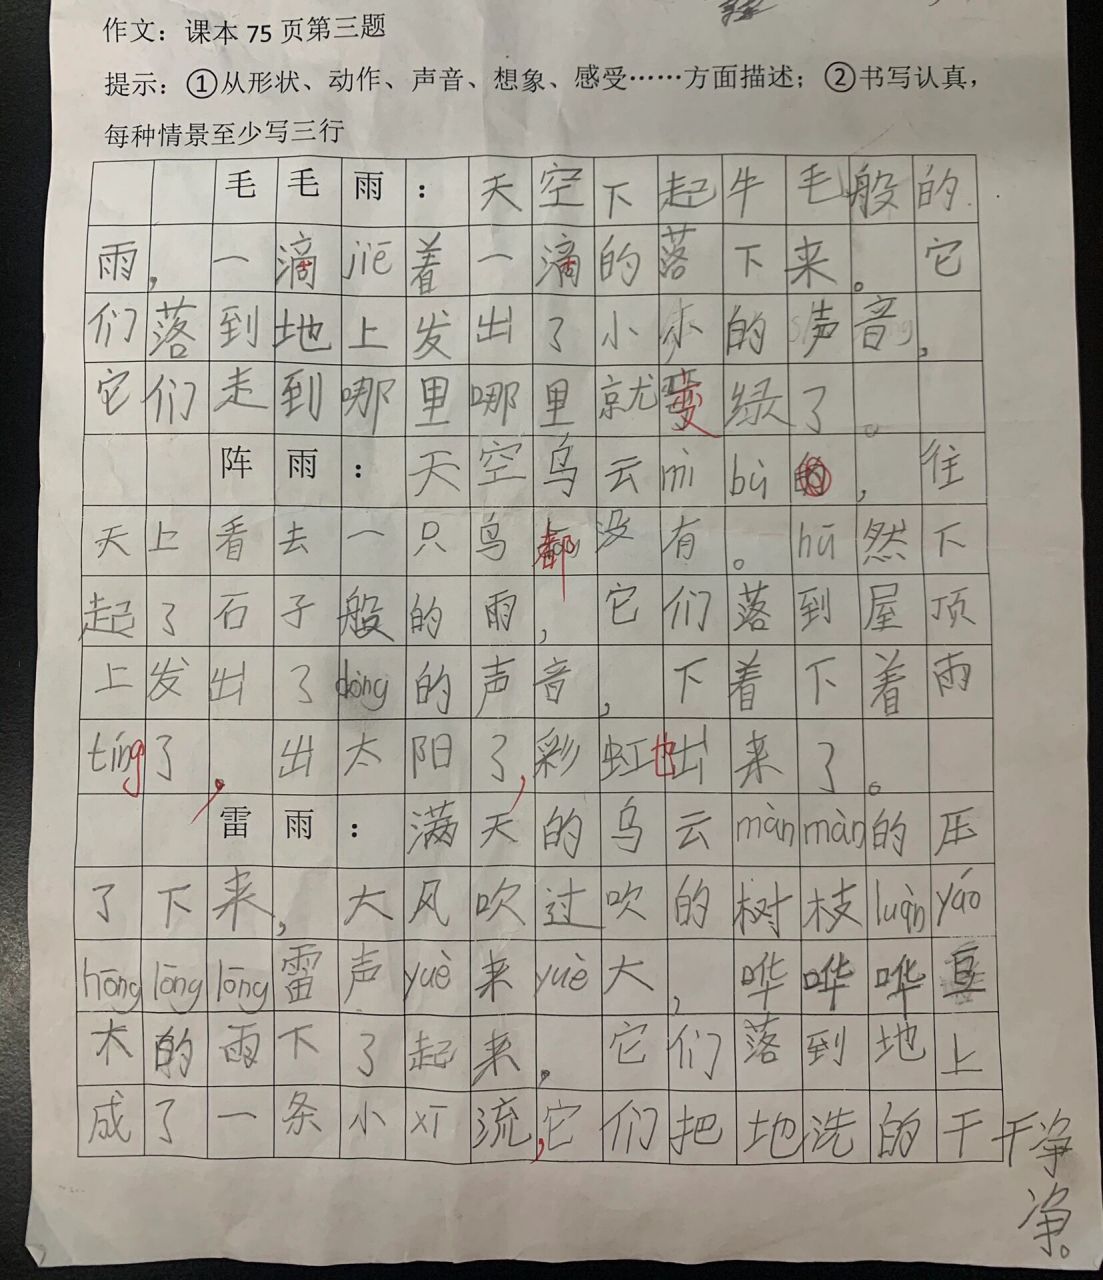 作文：课本 75 页第三题
提示：①从形状、动作、声音、想象、感受……方面描述；②书写认真，
每种情景至少写三行
毛毛雨：天空下起牛毛般的
雨，一滴jiē着一滴的落下来。它
们落到地上发出了小小的声音，
它们走到哪里哪里就变绿了。
阵雨：天空乌云mì bù的，往
天上看去一只鸟都没有。hū然下
起了石子般的雨，它们落到屋顶
上发出了dōng的声音，下着下着雨
tíng了，出太阳了，彩虹也出来了。
雷雨：满天的乌云màn màn的压
了下来，大风吹过吹的树枝luàn yáo
hōng lōng lōng雷声yuè来yuè大，哗哗哗豆
大的雨下了起来。它们落到地上
成了一条小xī流，它们把地洗的干干净
净。